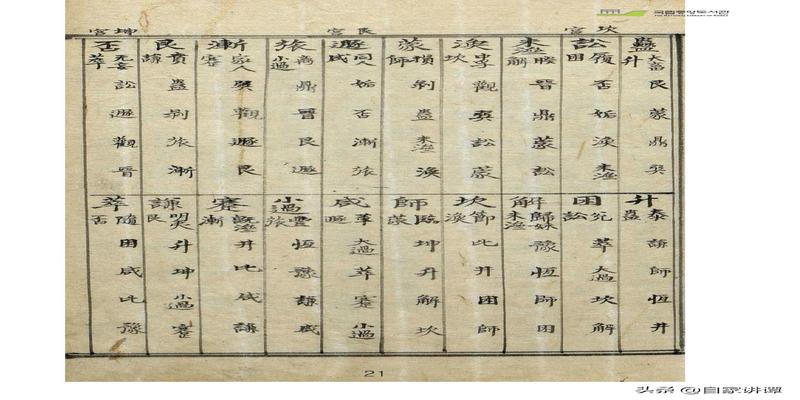 坎宮
艮宮
坤宮
蠱 大畜 升 艮 蒙 鼎 巽
訟 履 困 否 姤 渙 未濟
未濟 睽 解 晉 鼎 蒙 訟
渙 中孚 坎 觀 巽 訟 蒙
蒙 損 師 剝 蠱 未濟 渙
遯 同人 咸 姤 否 漸 旅
旅 离 小過 鼎 晉 艮 遯
漸 家人 蹇 巽 觀 遯 艮
艮 賁 謙 蠱 剝 旅 漸
否 无妄 萃 訟 遯 觀 晉
升 泰 蠱 謙 師 恆 井
困 兌 訟 萃 大過 坎 解
解 歸妹 未濟 豫 恆 師 困
坎 節 渙 比 井 困 師
師 臨 蒙 坤 升 解 坎
咸 革 遯 大過 萃 蹇 小過
小過 豐 旅 恆 豫 謙 咸
蹇 既濟 漸 井 比 咸 謙
謙 明夷 艮 升 坤 小過 蹇
萃 隨 否 困 咸 比 豫
21
头条 @自家讲谭